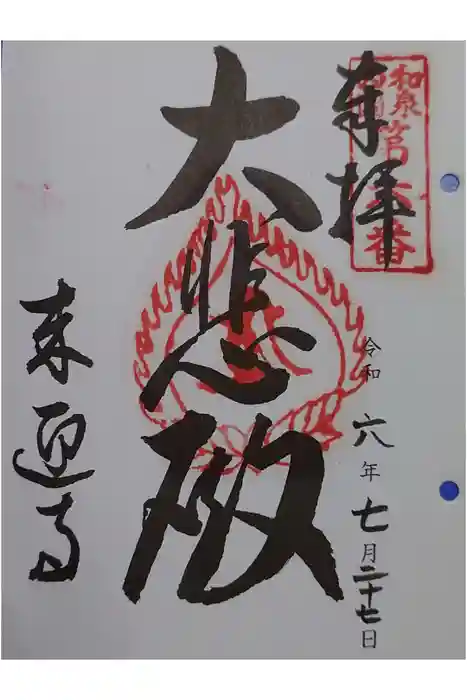 奉拝
和泉
西国
第六番
大悲殿
来迎寺
令和六年七月二十七日